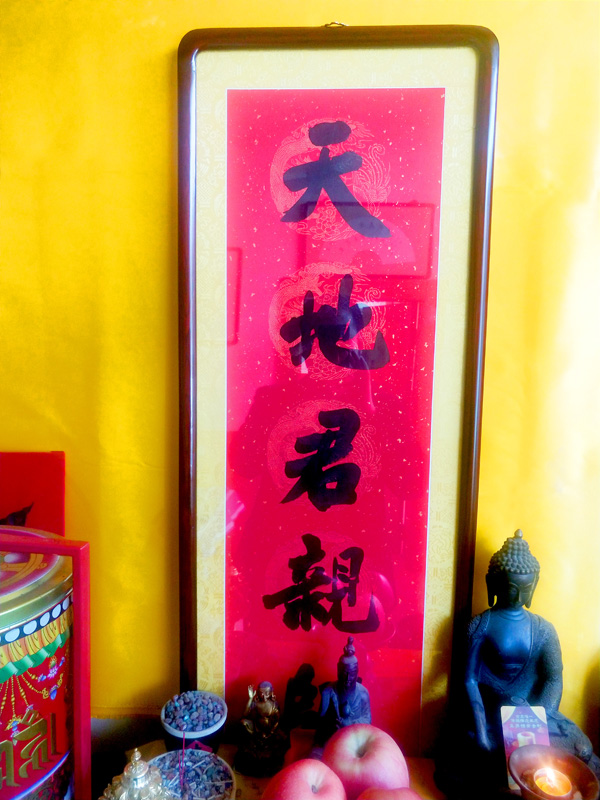 天地君親